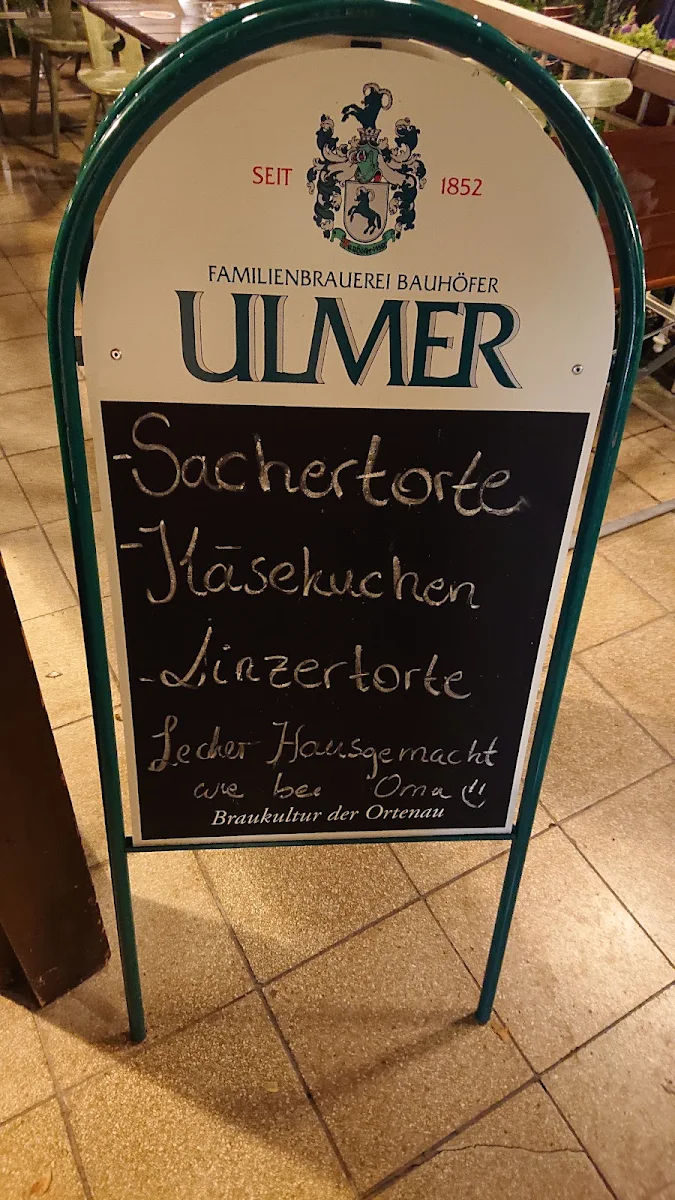 SEIT 1852
FAMILIENBRAUEREI BAUHÖFER
ULMER
-Sachertorte
-Käsekuchen
-Linzertorte
Lecker Hausgemacht
wie bei Oma
Braukultur der Ortenau